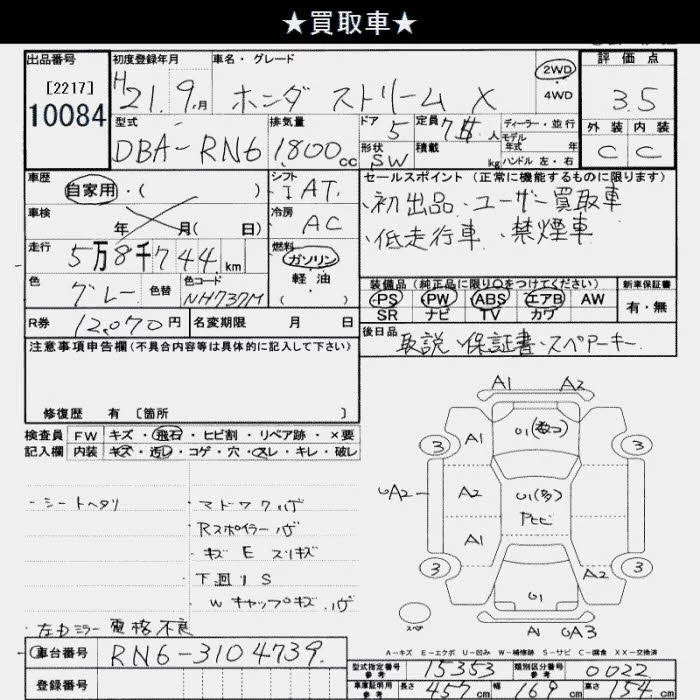 ★買取車★
出品番号 初度登録年月 車名・グレード 2WD 評価点
[2217] H21.9月 ホンダ ストリーム X 4WD 3.5
10084 型式 排気量 ドア 5 定員 7 人 ディーラー・並行 外装 内装
DBA-RN6 1800cc 形状 SW 積載 kg モデル年式 年 ハンドル 左・右 C C
車歴 シフト セールスポイント (正常に機能するものに限ります)
自家用・( ) I AT ・初出品・ユーザー買取車
車検 年 月( 日) 冷房 AC ・低走行車、禁煙車
走行 5万8千744km 燃料 ガソリン 装備品(純正品に限り○をつけてください) 新車保証書
色 色替 色コード 軽油 ・PS PW ABS エアB AW 有・無
グレー NH737M ( ) SR ナビ TV カワ
R券 12,070円 名変期限 月 日 後日品
注意事項申告欄(不具合内容等は具体的に記入して下さい) 取説、保証書・スペアーキー
修復歴 有 [箇所 ]
検査員 FW キズ・飛石・ヒビ割・リペア跡・×要
記入欄 内装 キズ・汚レ・コゲ・穴・スレ・キレ・破レ
A1 A2
U1
3 A1 3
UA2 A2 U1(多)
A1
3 3
A2
U1
スペア A1 UA3
・シートヘタリ ・マドワクハゲ
Rスポイラーハゲ
キズ E スリキズ
下回リS
Wキャップキズ、ハゲ
左ドミラー電格不良
A-キズ E-エクボ U-凹み W-補修跡 S-サビ C-腐食 XX-交換済
車台番号 RN6-3104739. 型式指定番号 参考 15353 類別区分番号 参考 0022
登録番号 車庫証明用 参考 長さ 457cm 幅 169cm 高さ 154cm